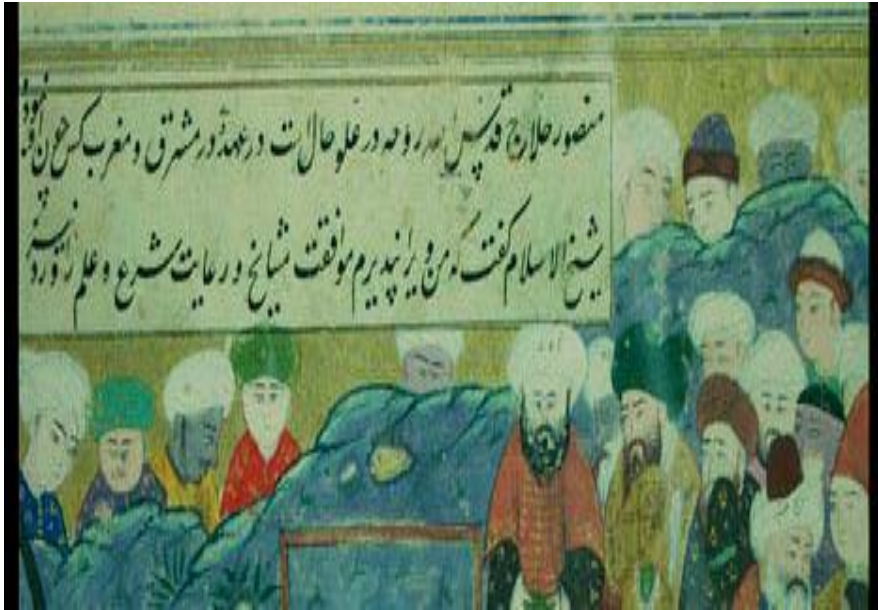 منصور حلاج قدس الله روحه در علو حالت در عهد او در مشرق و مغرب کس چون او نبود
شیخ الاسلام گفت که من ویرا نپذیرم موافقت مشایخ و رعایت شرع و علم را و رد نیز